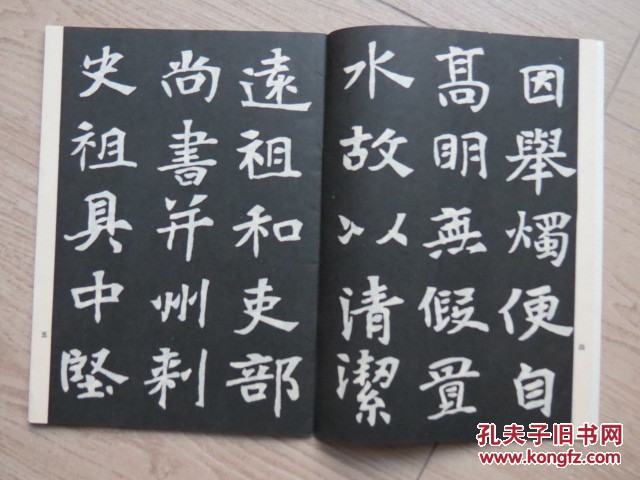 因舉燭便自
髙明無假置
水故以清潔
遠祖和吏部
尚書并州刺
史祖具中堅
四
五
孔夫子旧书网
www.kongfz.com